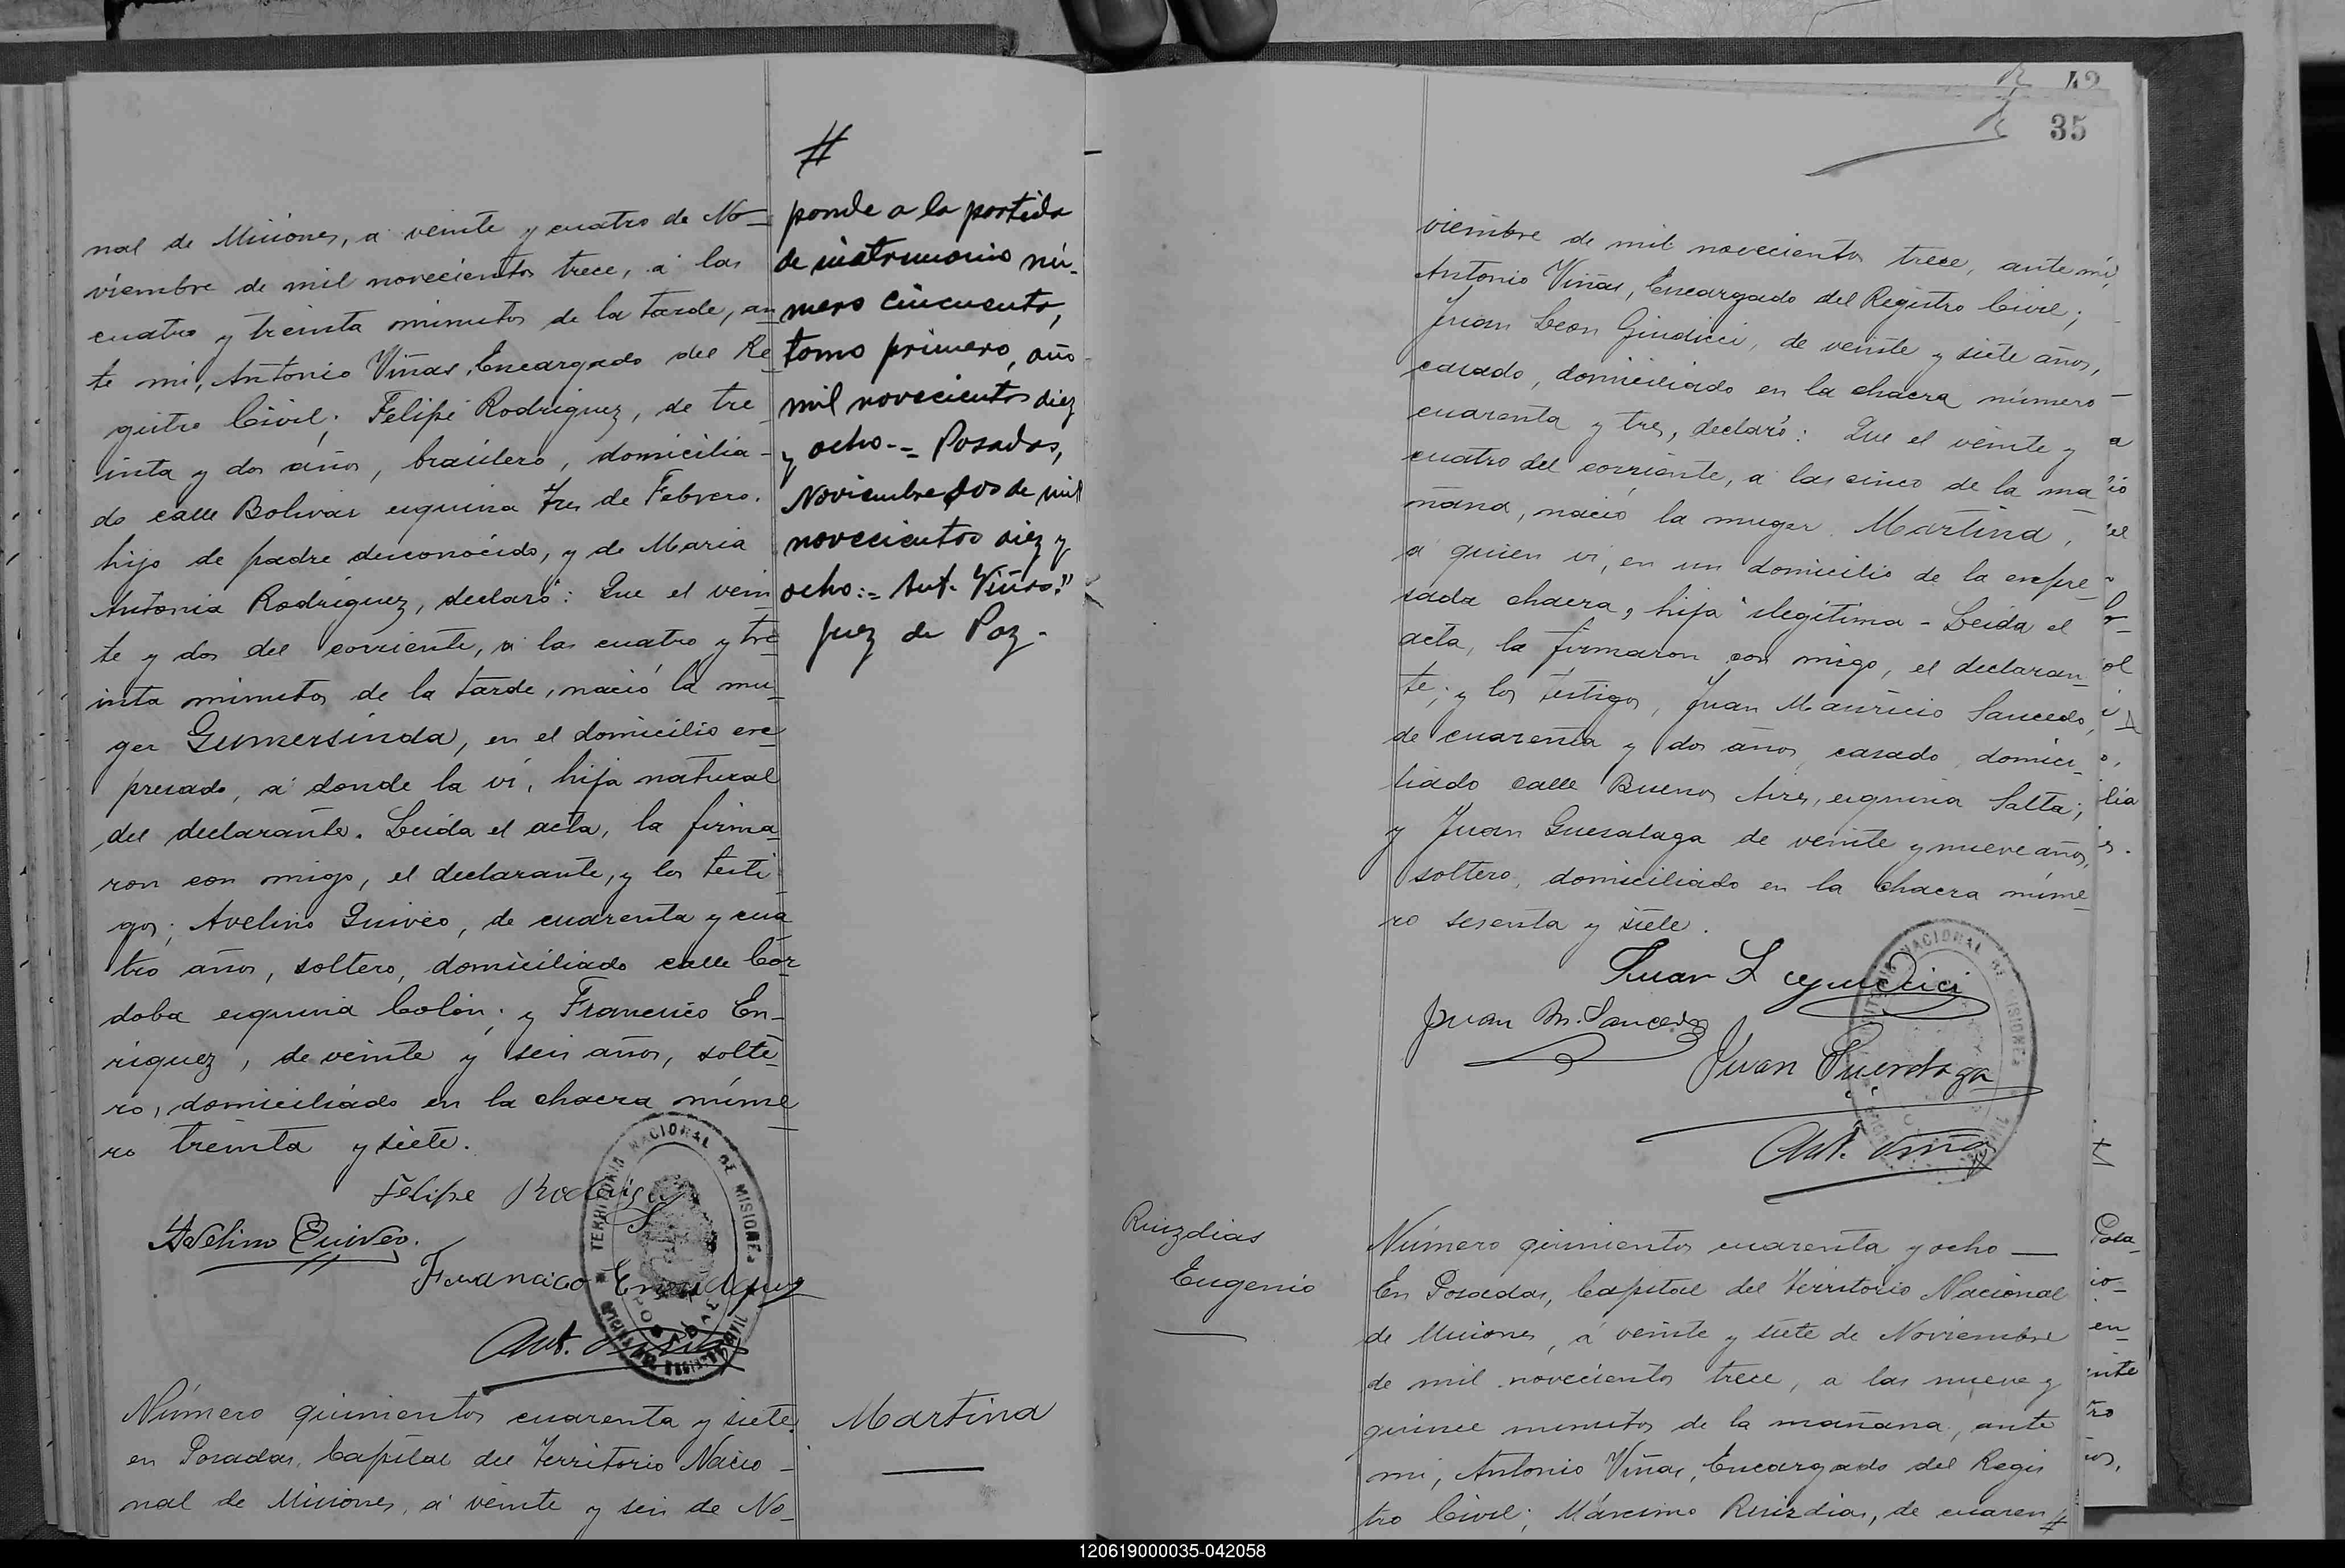 nal de Misiones, a veinte y cuatro de No-
viembre de mil novecientos trece, a las
cuatro y treinta minutos de la tarde, an
te mi, Antonio Viñas, Encargado del Re
gistro Civil; Felipe Rodriguez, de tre
inta y dos años, brasilero, domicilia-
do calle Bolivar esquina Tres de Febrero.
hijo de padre desconocido, y de Maria
Antonia Rodriguez, declaró: Que el vein
te y dos del corriente, a las cuatro y tre
inta minutos de la tarde, nació la mu-
ger Gumersinda, en el domicilio exe
presado, a donde la ví, hija natural
del declarante. Leida el acta, la firma
ron con migo, el declarante, y los testi
gos; Avelino Quiveo, de cuarenta y cua
tro años, soltero, domiciliado calle Cor
doba esquina Colón; y Francisco En-
riquez, de veinte y seis años, solte-
ro, domiciliado en la chacra núme
ro treinta y siete.
Felipe Rodriguez
Avelino Quiveo.
Francisco Enriquez
Ant. Viñas
TERRITORIO NACIONAL DE MISIONES
POSADAS
Número quinientos cuarenta y siete.
en Posadas, Capital del Territorio Nacio-
nal de Misiones, a veinte y seis de No-
#
ponde a la partida
de matrimonio nú-
mero cincuenta,
tomo primero, año
mil novecientos diez
y ocho.= Posadas,
Noviembre dos de mil
novecientos diez y
ocho:= Ant. Viñas."
Juez de Paz.
Martina
42
35
viembre de mil novecientos trece, ante mi,
Antonio Viñas, Encargado del Registro Civil;
Juan Leon Giudici, de veinte y siete años,
casado, domiciliado en la chacra número
cuarenta y tres, declaró: Que el veinte y
cuatro del corriente, a las cinco de la ma
ñana, nació la muger Martina,
a quien ví, en un domicilio de la expre-
sada chacra, hija ilegitima - Leida el
acta, la firmaron con migo, el declaran-
te; y los testigos, Juan Mauricio Saucedo,
de cuarenta y dos años, casado, domici-
liado calle Buenos Aires, esquina Salta;
y Juan Guesalaga de veinte y nueve años,
soltero, domiciliado en la chacra núme-
ro sesenta y siete.
Juan L Giudici
Juan M. Saucedo
Juan
Ant. Viñas
NACIONAL DE MISIONES
Ruizdias
Eugenio
Número quinientos cuarenta y ocho —
En Posadas, Capital del Territorio Nacional
de Misiones, a veinte y siete de Noviembre
de mil novecientos trece, a las nueve y
quince minutos de la mañana, ante
mi, Antonio Viñas, Encargado del Regis
tro Civil; Máximo Ruizdias, de cuaren
#
120619000035-042058